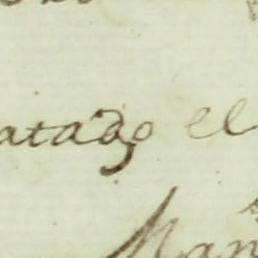 atado el
Man